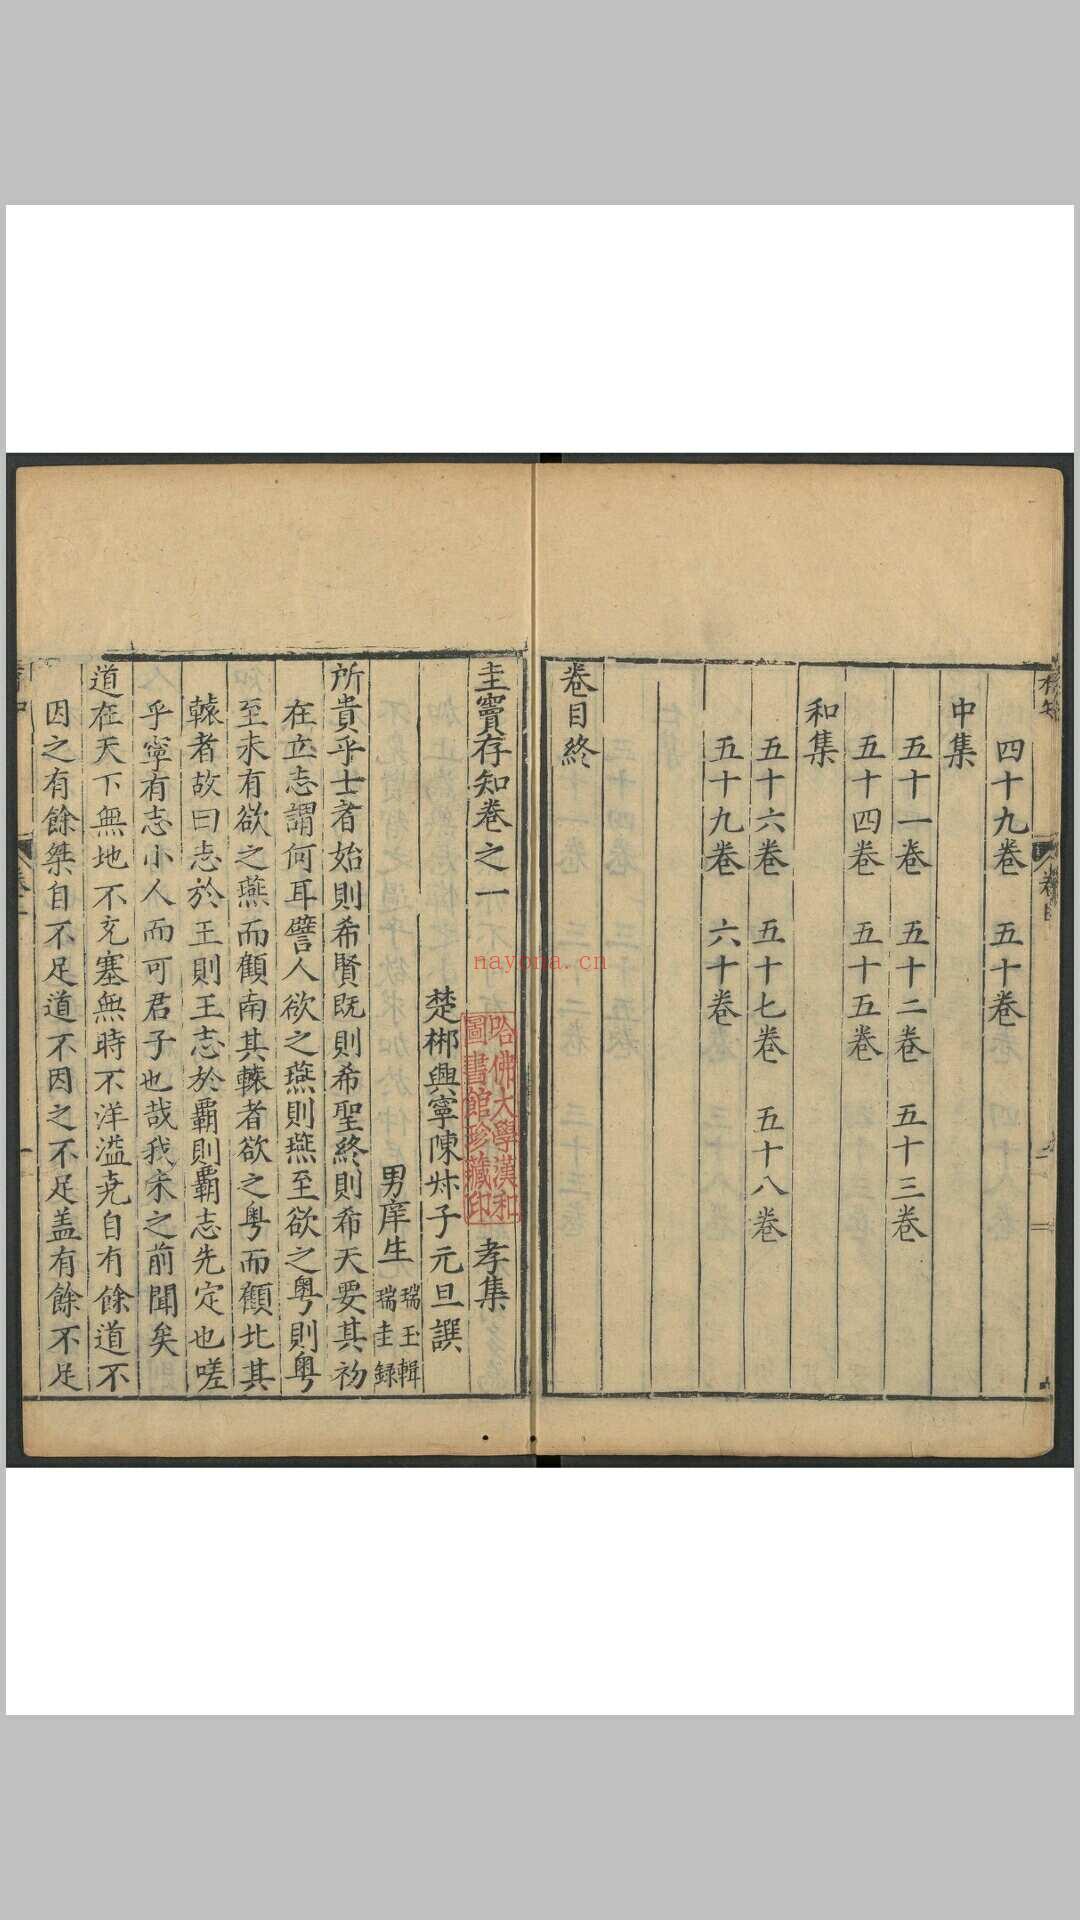 四十九卷　五十卷
中集
五十一卷　五十二卷　五十三卷
五十四卷　五十五卷
和集
五十六卷　五十七卷　五十八卷
五十九卷　六十卷
卷目終
圭竇存知卷之一　孝集
楚郴興寧陳尗子元旦譔
男庠生
瑞玉輯
瑞圭録
所貴乎士者始則希賢旣則希聖終則希天要其初
在立志謂何耳譬人欲之燕則燕至欲之粤則粤
至未有欲之燕而顧南其轅者欲之粤而顧北其
轅者故曰志於王則王志於覇則覇志先定也嗟
乎寧有志小人而可君子也哉我宋之前聞矣
道在天下無地不充塞無時不洋溢堯自有餘道不
因之有餘桀自不足道不因之不足盖有餘不足
哈佛大學漢和
圖書館珍藏印
nayona.cn